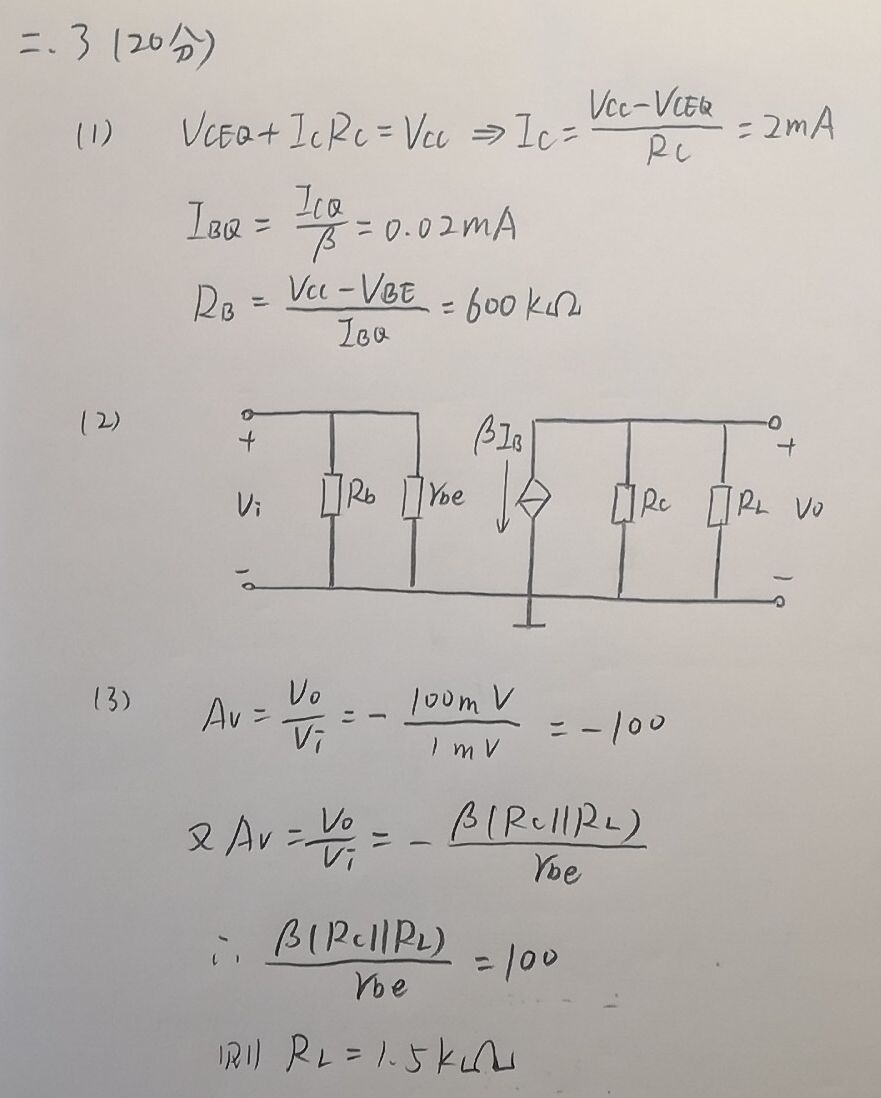 二.3(20分)
(1) VCEQ+ICRC=VCC⇒IC=\frac{VCC-VCEQ}{RC}=2mA
IBQ=\frac{ICQ}{β}=0.02mA
RB=\frac{VCC-VBE}{IBQ}=600kΩ
(2) βIB
+ +
Vi Rb rbe Rc RL Vo
- -
(3) Av=\frac{Vo}{Vi}=-\frac{100mV}{1mV}=-100
又Av=\frac{Vo}{Vi}=-\frac{β(Rc||RL)}{rbe}
∴\frac{β(Rc||RL)}{rbe}=100
则RL=1.5kΩ